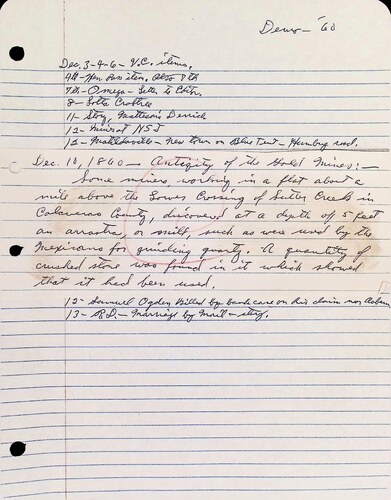 Demo - '60
Dec. 3-4-6- V.C. items.
7th- Omega - Letter to Editor.
8- Lotta Crabtree
11- Story, Matteson's Derrick
12- Mines at NSJ
12- - New town on Blue Tent - Humbug road.
Dec. 10, 1860 - Antiquity of the Gold Mines:-
Some miners, working in a flat about a
mile above the Lower Crossing of Sutter Creek in
Calaveras County, discovered at a depth of 5 feet
an arrastra, or mill, such as were used by the
Mexicans for grinding quartz. A quantity of
crushed stone was found in it which showed
that it had been used.
12- Samuel Ogden killed by bank cave on his claim near Auburn
13- R.D. - Marriage by Mail - story.